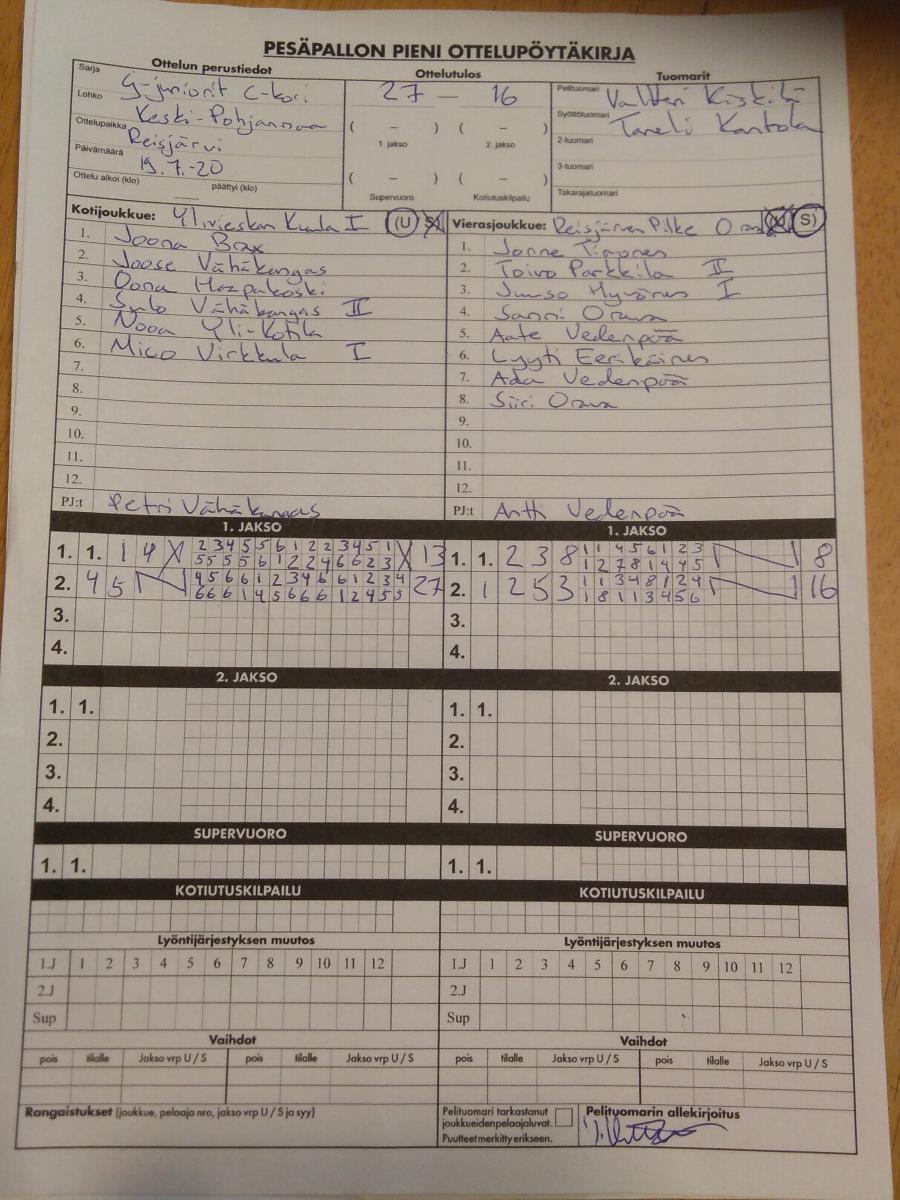 PESÄPALLON PIENI OTTELUPÖYTÄKIRJA
Ottelun perustiedot Ottelutulos Tuomarit
Sarja G-juniorit C-kori 27 — 16 Pelituomari Valtteri Kiskilä
Lohko Keski-Pohjanmaa Syöttötuomari Taneli Kantola
Ottelupaikka Reisjärvi ( – ) ( – ) 2-tuomari
1. jakso 2. jakso
Päivämäärä 19.7.-20 3-tuomari
Ottelu alkoi (klo) päättyi (klo) ( – ) ( – ) Takarajatuomari
Supervuoro Kotiutuskilpailu
Kotijoukkue: Ylivieskan Kuula I (U) S Vierasjoukkue: Reisjärven Pilke Oranssi (U S)
1. Joona Brax 1. Jonne
2. Joose Vähäkangas 2. Toivo Parkkila II
3. Oona Haapakoski 3. Juuso Hyvönen I
4. Vähäkangas II 4. Sanni Orava
5. Nooa Yli-Kotila 5. Aate Vedenpää
6. Mico Virkkula I 6. Lyyti Eeräkäinen
7. 7. Ada Vedenpää
8. 8. Siiri Orava
9. 9.
10. 10.
11. 11.
12. 12.
PJ:t Petri Vähäkangas PJ:t Antti Vedenpää
1. JAKSO 1. JAKSO
1. 1. 1 4 X 2 3 4 5 5 6 1 2 2 3 4 5 1 X 13 1. 1. 2 3 8 1 1 4 5 6 1 2 3 8
5 5 5 5 6 1 2 2 4 6 6 2 3 1 2 7 8 1 4 4 5
2. 4 5 4 5 6 6 1 2 3 4 6 6 1 2 3 4 27 2. 1 2 5 3 1 1 3 4 8 1 2 4 16
6 6 6 1 4 5 6 6 6 1 2 4 5 5 1 8 1 1 3 4 5 6
3. 3.
4. 4.
2. JAKSO 2. JAKSO
1. 1. 1. 1.
2. 2.
3. 3.
4. 4.
SUPERVUORO SUPERVUORO
1. 1. 1. 1.
KOTIUTUSKILPAILU KOTIUTUSKILPAILU
Lyöntijärjestyksen muutos Lyöntijärjestyksen muutos
1.J 1 2 3 4 5 6 7 8 9 10 11 12 1.J 1 2 3 4 5 6 7 8 9 10 11 12
2.J 2.J
Sup Sup
Vaihdot Vaihdot
pois tilalle Jakso vrp U / S pois tilalle Jakso vrp U / S pois tilalle Jakso vrp U / S pois tilalle Jakso vrp U / S
Rangaistukset (joukkue, pelaaja nro, jakso vrp U / S ja syy) Pelituomari tarkastanut Pelituomarin allekirjoitus
joukkueidenpelaajaluvat.
Puutteetmerkitty erikseen.